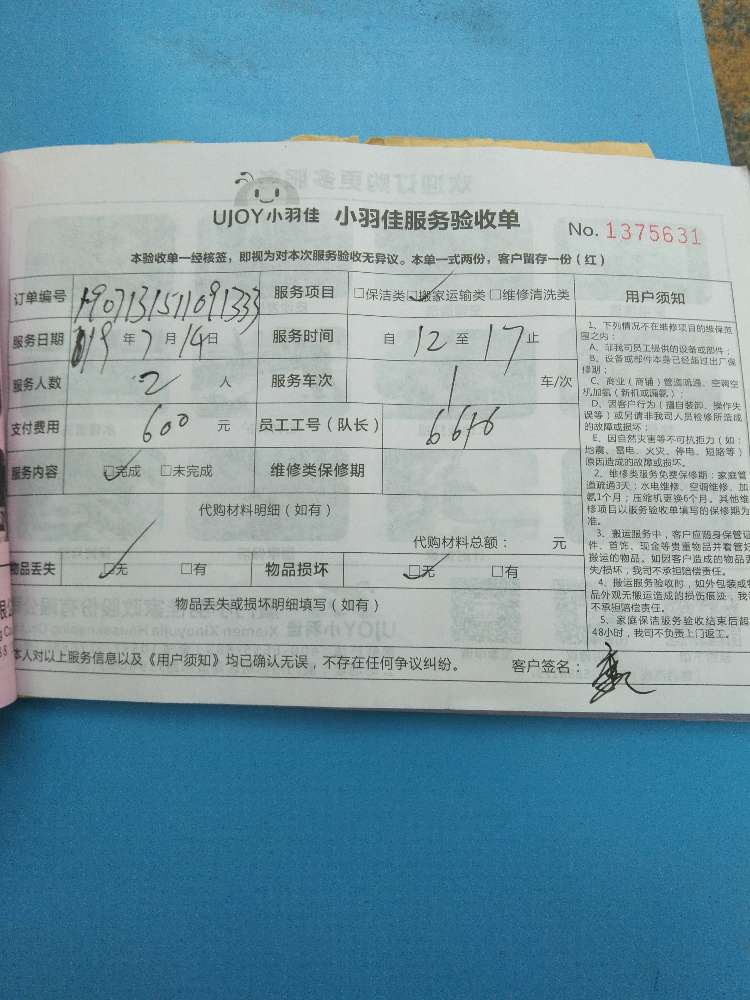 UJOY小羽佳 小羽佳服务验收单 No. 1375631
本验收单一经核签，即视为对本次服务验收无异议。本单一式两份，客户留存一份（红）
订单编号 1907131511091333 服务项目 □保洁类 ☑搬家运输类 □维修清洗类
服务日期 19 年 7 月 14 日 服务时间 自 12 至 17 止
服务人数 2 人 服务车次 1 车/次
支付费用 600 元 员工工号（队长） 6676
服务内容 ☑完成 □未完成 维修类保修期
代购材料明细（如有）
代购材料总额： 元
物品丢失 ☑无 □有 物品损坏 ☑无 □有
物品丢失或损坏明细填写（如有）
本人对以上服务信息以及《用户须知》均已确认无误，不存在任何争议纠纷。 客户签名：
用户须知
1、下列情况不在维修项目的维保范
围之内：
A、非我司员工提供的设备或部件；
B、设备或部件本身已经超过出厂保
修期；
C、商业（商铺）管道疏通、空调空
机加氨（新机或漏氨）；
D、因客户行为（擅自装卸、操作失
误等）或另请非我司人员检修所造成
的故障或损坏；
E、因自然灾害等不可抗拒力（如：
地震、雷电、火灾、停电、短路等）
原因造成的故障或损坏。
2、维修类服务免费保修期：家庭管
道疏通3天；水电维修、空调维修、加
氨1个月；压缩机更换6个月。其他维
修项目以服务验收单填写的保修期为
准。
3、搬运服务中，客户应随身保管证
件、首饰、现金等贵重物品并看管好
搬运的物品。如因客户造成的物品丢
失/损坏，我司不承担赔偿责任。
4、搬运服务验收时，如外包装或物
品外观无搬运造成的损伤痕迹，我司
不承担赔偿责任。
5、家庭保洁服务验收结束后超
48小时，我司不负责上门返工。